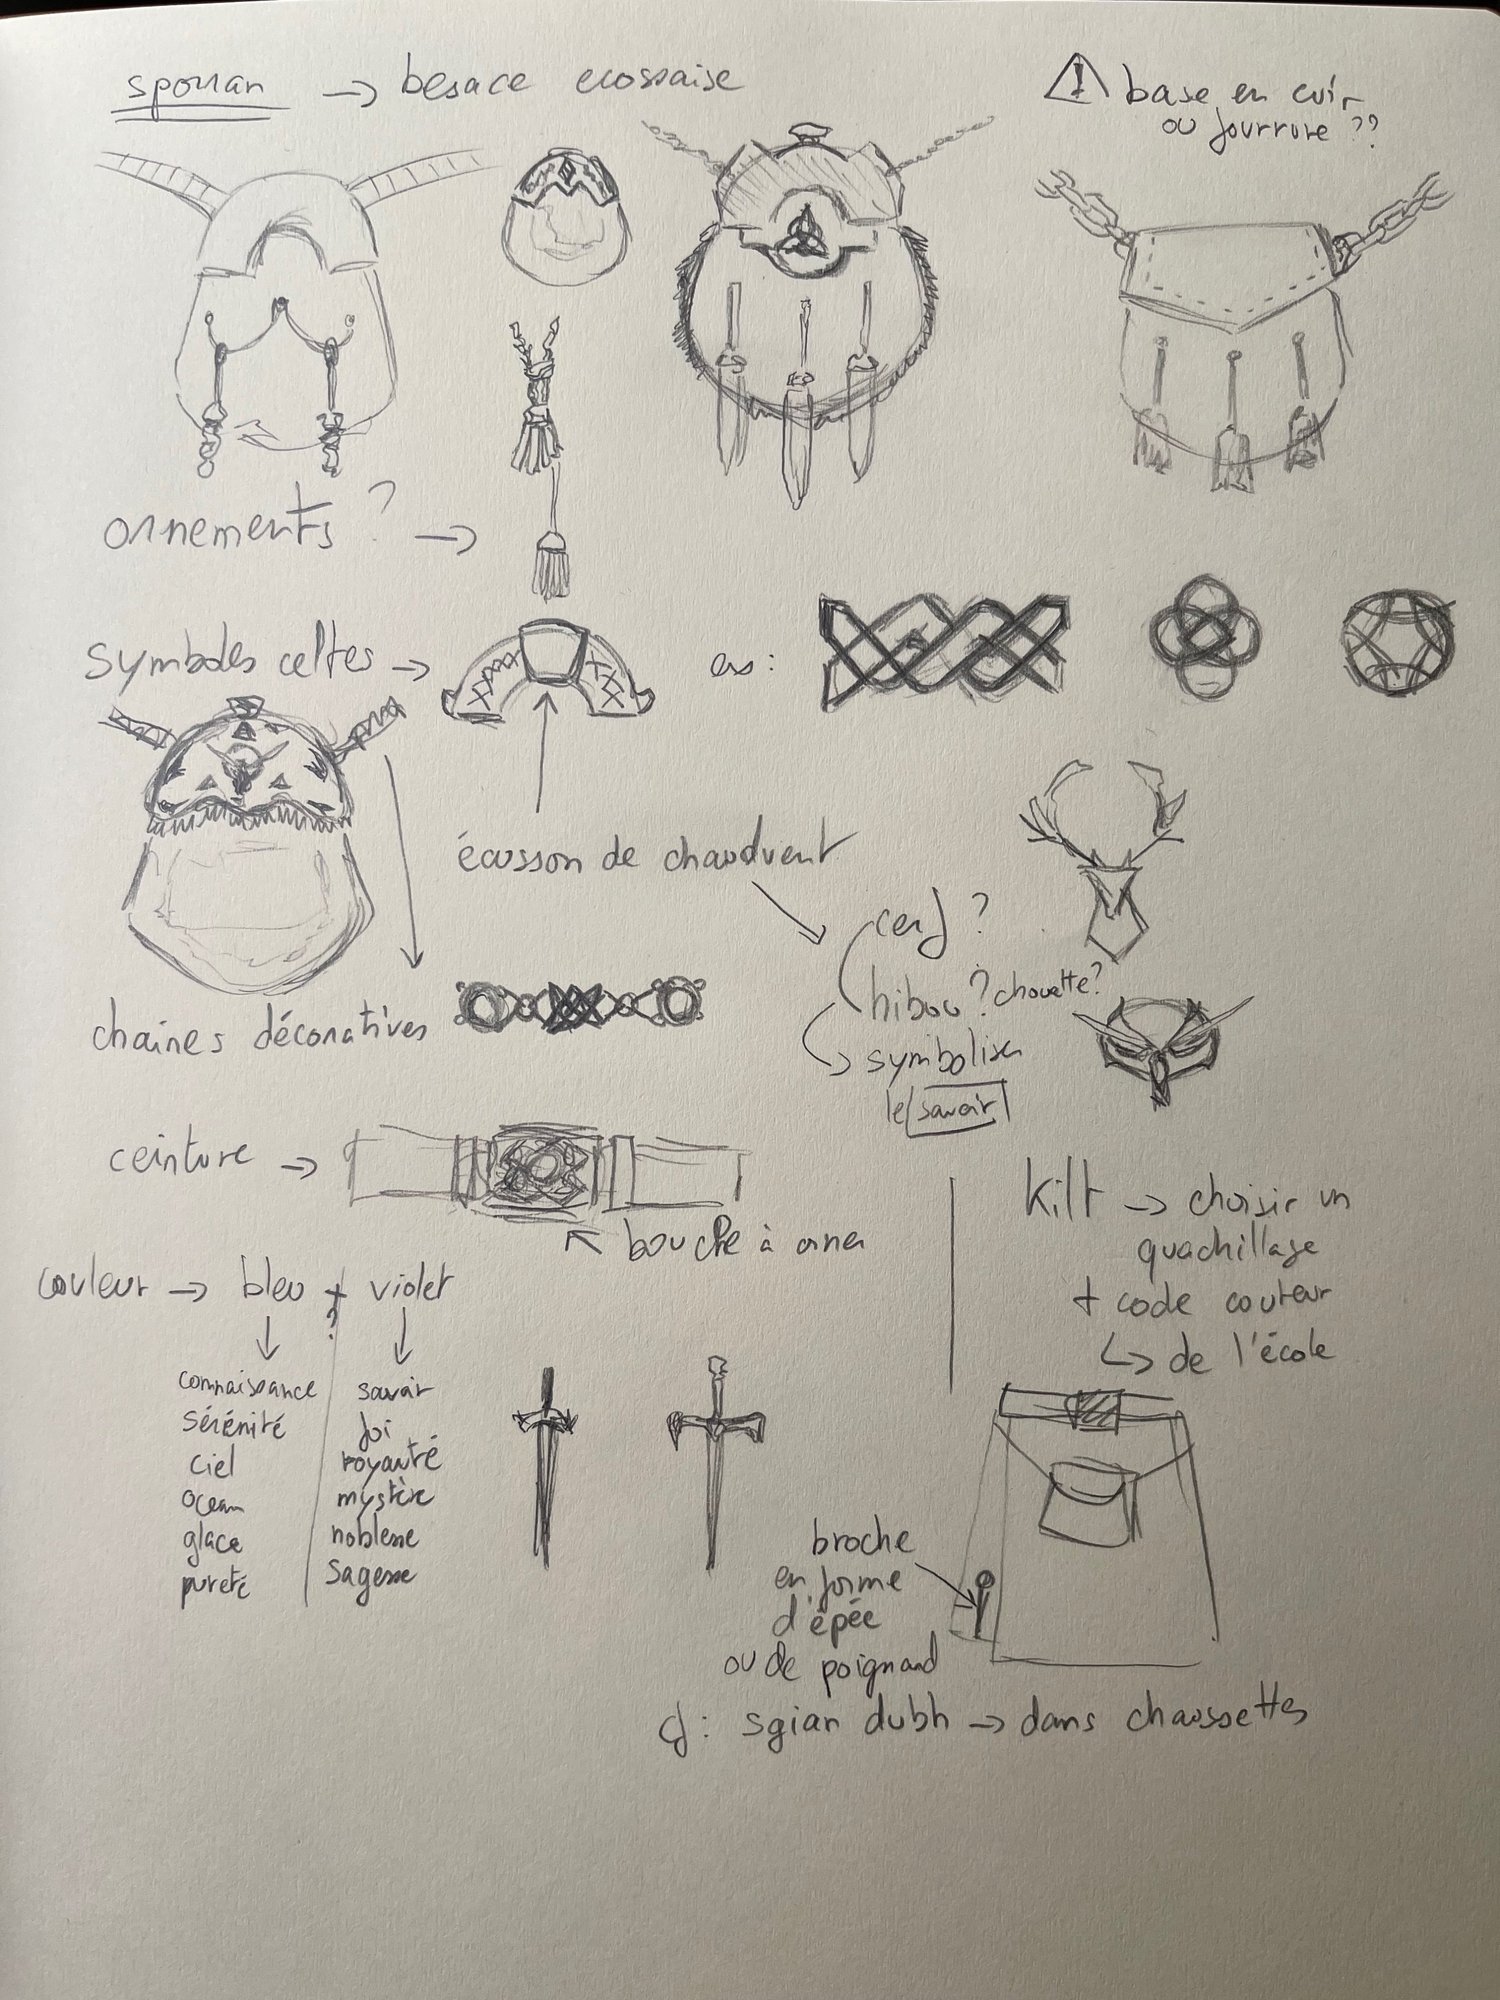 sporran → besace ecossaise
⚠ base en cuir
ou fourrure ??
ornements ? →
symboles celtes →
ex :
écusson de chaudvent
cerf ?
hibou ? chouette ?
↳ symboliser
le savoir
chaînes décoratives
ceinture →
boucle à orner
couleur → bleu + violet
?
connaissance
sérénité
ciel
ocean
glace
pureté
savoir
foi
royauté
mystère
noblesse
sagesse
kilt → choisir un
quadrillage
+ code couleur
↳ de l'école
broche
en forme
d'épée
ou de poignard
cf : sgian dubh → dans chaussettes